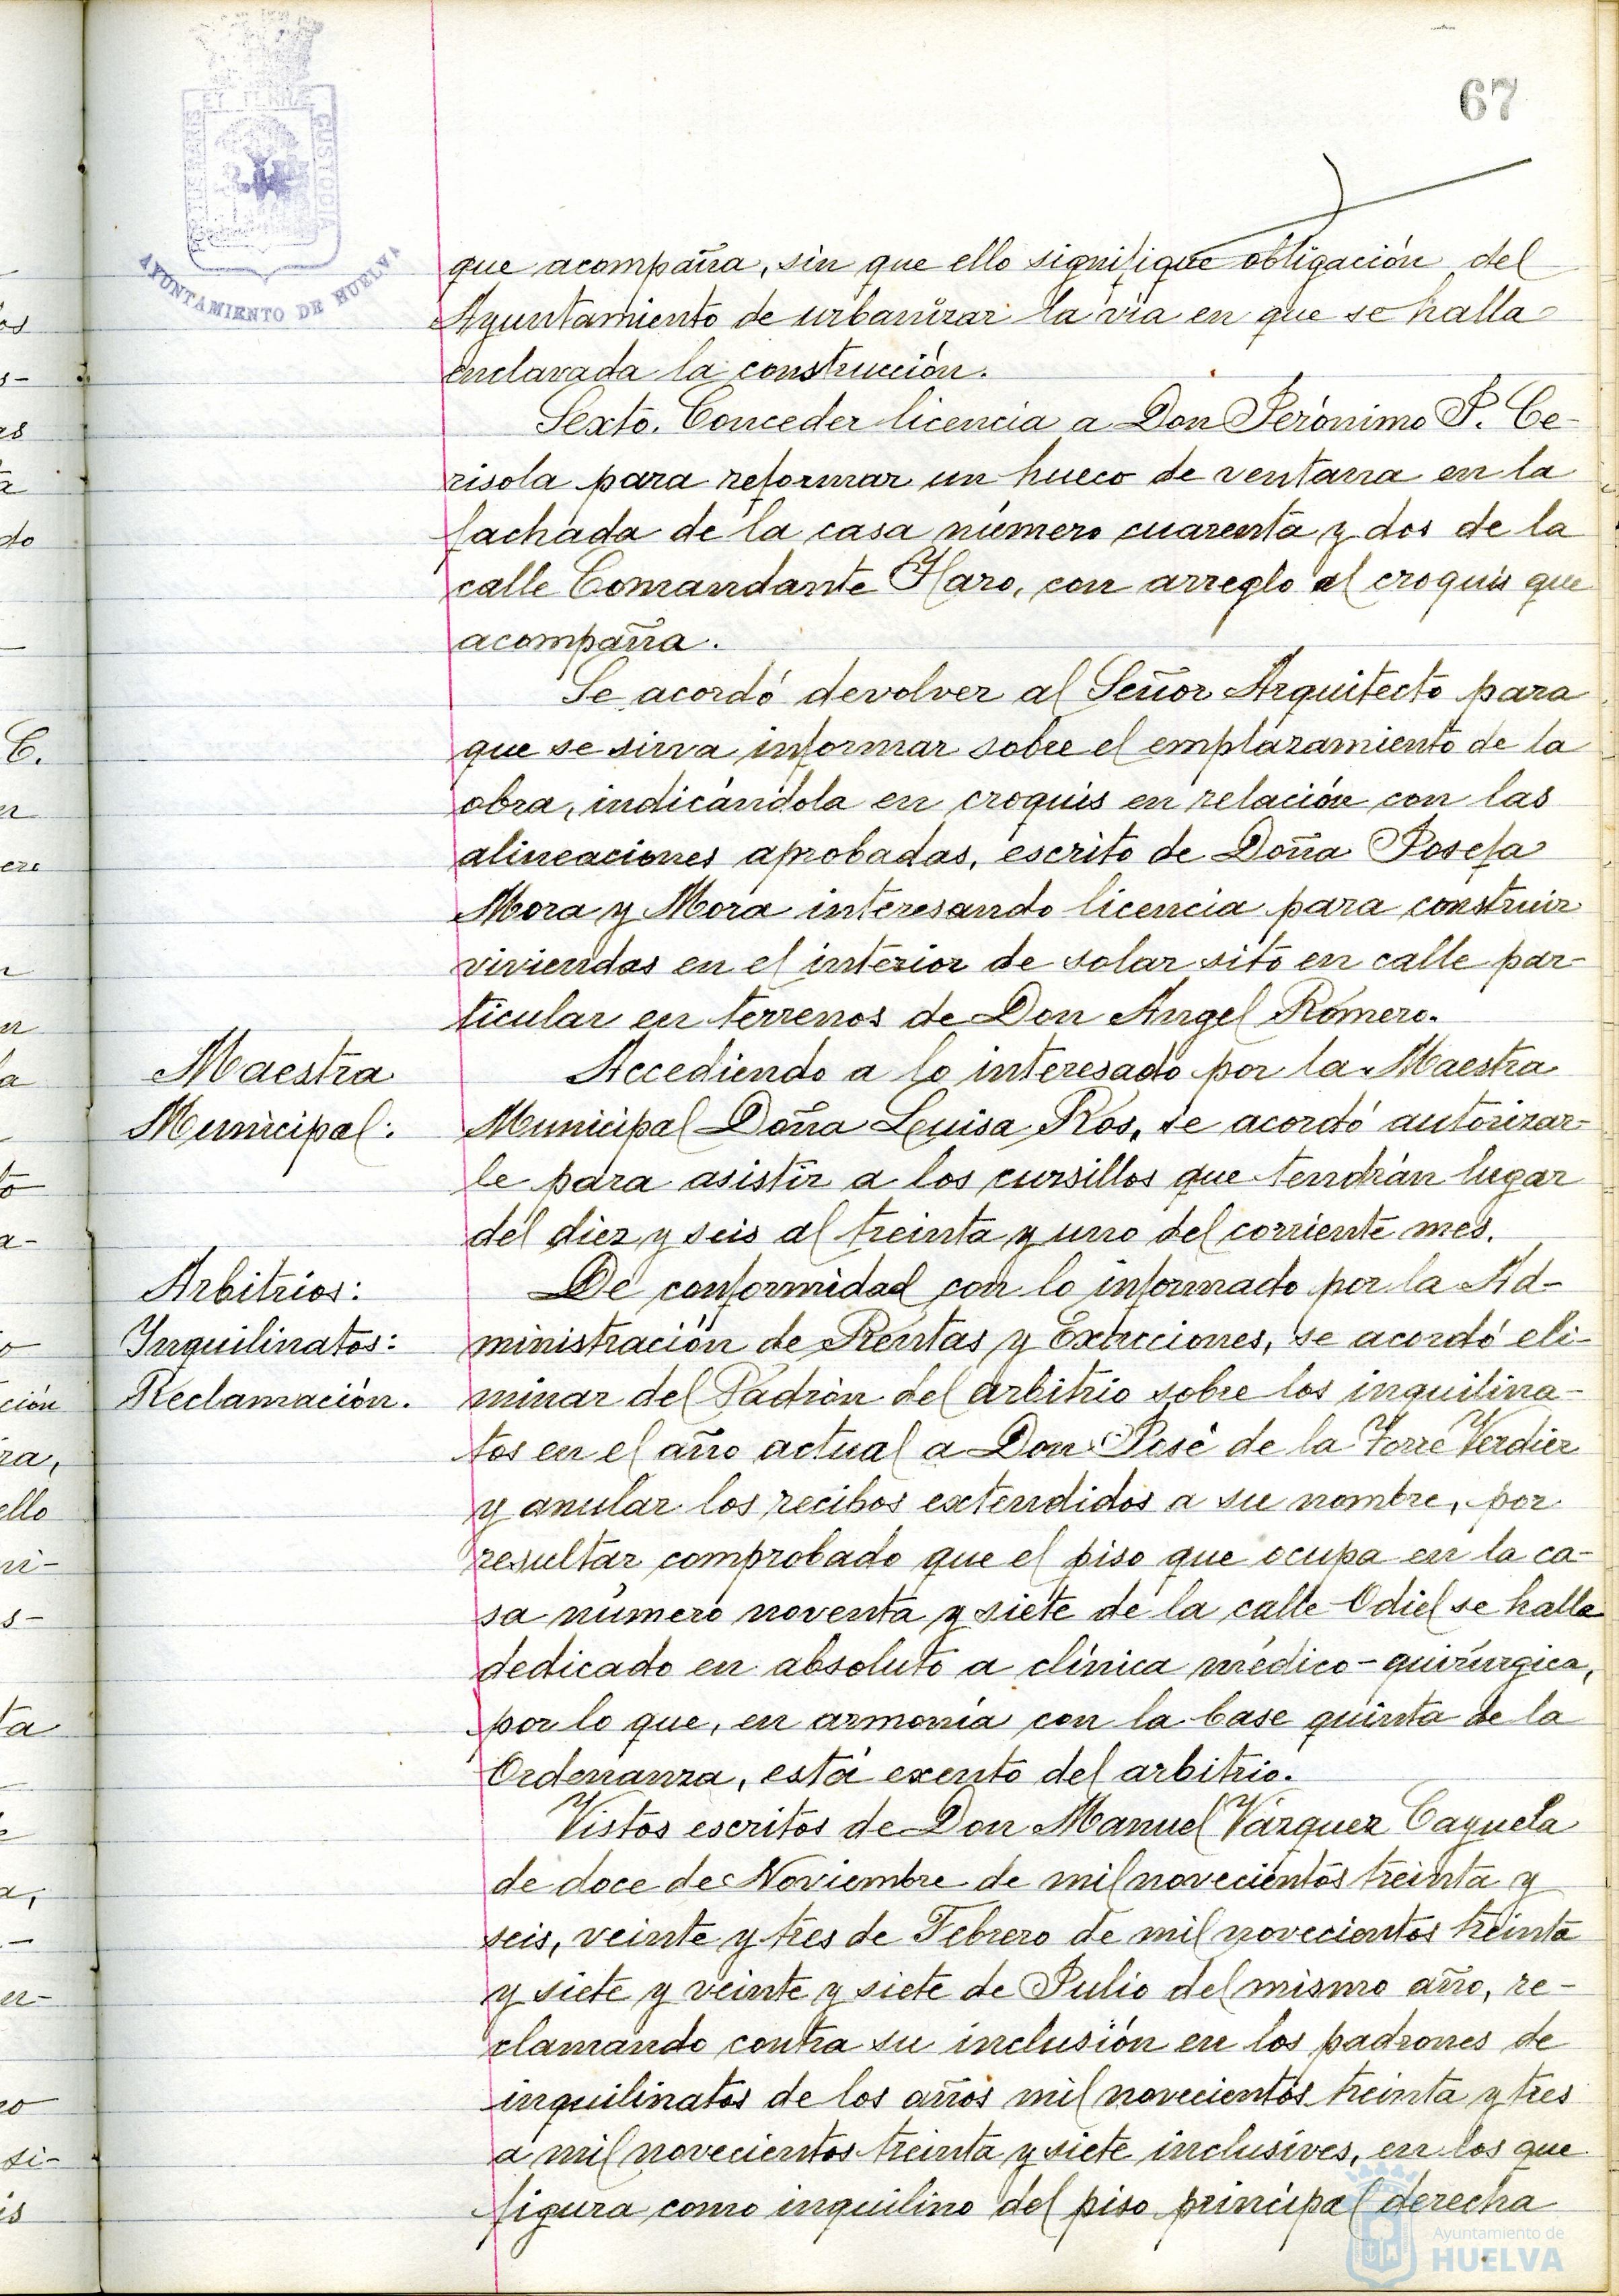 67
ET TERRÆ
CUSTODIA
AYUNTAMIENTO DE HUELVA
que acompaña, sin que ello signifique obligación del
Ayuntamiento de urbanizar la vía en que se halla
enclavada la construcción.
Sexto. Conceder licencia a Don Jerónimo P. Ce-
risola para reformar un hueco de ventana en la
fachada de la casa número cuarenta y dos de la
calle Comandante Haro, con arreglo al croquis que
acompaña.
Se acordó devolver al Señor Arquitecto para
que se sirva informar sobre el emplazamiento de la
obra, indicándola en croquis en relación con las
alineaciones aprobadas, escrito de Doña Josefa
Mora y Mora interesando licencia para construir
viviendas en el interior de solar sito en calle par-
ticular en terrenos de Don Angel Romero.
Maestra
Municipal:
Accediendo a lo interesado por la Maestra
Municipal Doña Luisa Ros, se acordó autorizar-
le para asistir a los cursillos que tendrán lugar
del diez y seis al treinta y uno del corriente mes.
Arbitrios:
Inquilinatos:
Reclamación.
De conformidad con lo informado por la Ad-
ministración de Rentas y Exacciones, se acordó eli-
minar del Padrón del arbitrio sobre los inquilina-
tos en el año actual a Don José de la Torre Verdier
y anular los recibos extendidos a su nombre, por
resultar comprobado que el piso que ocupa en la ca-
sa número noventa y siete de la calle Odiel se halla
dedicado en absoluto a clínica médico-quirúrgica,
por lo que, en armonía con la base quinta de la
Ordenanza, está exento del arbitrio.
Vistos escritos de Don Manuel Vázquez Cayuela
de doce de Noviembre de mil novecientos treinta y
seis, veinte y tres de Febrero de mil novecientos treinta
y siete y veinte y siete de Julio del mismo año, re-
clamando contra su inclusión en los padrones de
inquilinatos de los años mil novecientos treinta y tres
a mil novecientos treinta y siete inclusives, en los que
figura como inquilino del piso principal derecha
Ayuntamiento de
HUELVA